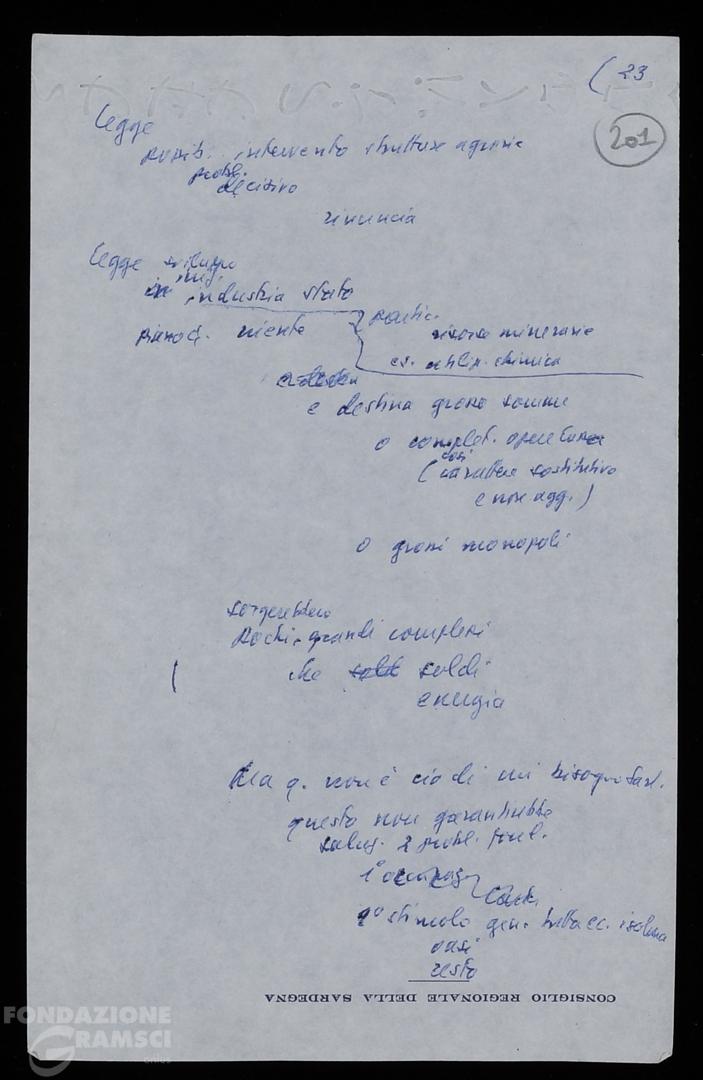 ( 23
201
legge
possib. intervento strutture agrarie
probl.
decisivo
rinuncia
legge sviluppo
industria stato
niente
partic.
risorse minerarie
es. chimica
e destina grosse somme
o complet. opere
così
(carattere sostitutivo
e non agg.)
o grossi monopoli
sorgerebbero
Pochi grandi complessi
che soldi
energia
Ma q. non è ciò di cui bisogno Sard.
questo non garantirebbe
soluz. 2 probl. fond.
1°
2° stimolo gen. tutta ec. isolana
oasi
resto
CONSIGLIO REGIONALE DELLA SARDEGNA
FONDAZIONE
GRAMSCI
onlus